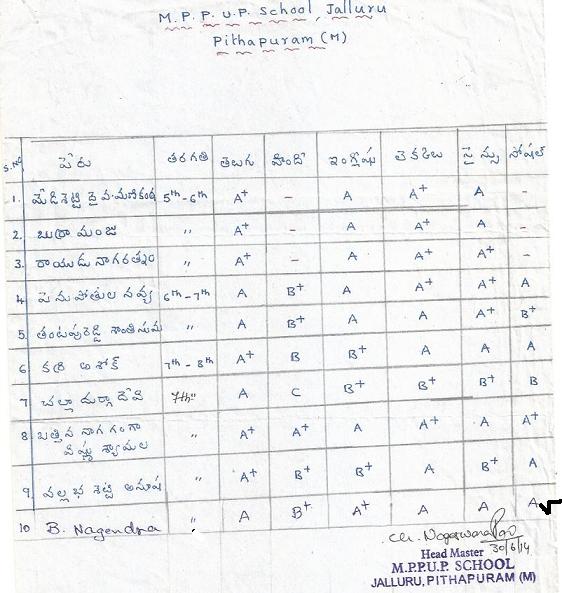 M.P.P.U.P. School, Jalluru
Pithapuram (M)
S.No పేరు తరగతి తెలుగు హిందీ ఇంగ్లీషు లెక్కలు సైన్సు సోషల్
1. మేడిశెట్టి దైవ మణికంఠ 5th-6th A+ - A A+ A -
2. బుర్రా మంజు " A+ - A A+ A -
3. రాయుడు నాగరత్నం " A+ - A A+ A+ -
4 పెనుపోతుల నవ్య 6th-7th A B+ A A+ A+ A
5. శాంతిసుమ " A B+ A A A+ B+
6 కర్రి అశోక్ 7th-8th A+ B B+ A A A
7 చల్లా దుర్గాదేవి 7th" A C B+ B+ B+ B
8 బత్తిన నాగ గంగా
విష్ణు శ్యామల " A+ A+ A A+ A A+
9. వల్లభశెట్టి అనూష " A+ B+ B+ A B+ A
10 B. Nagendra " A B+ A+ A A A
Ch. Nageswara Rao
30/6/14
Head Master
M.P.P.U.P. SCHOOL
JALLURU, PITHAPURAM (M)